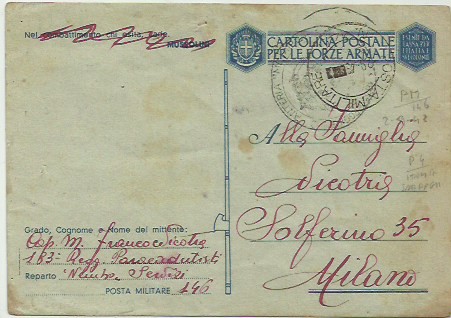 Nel combattimento chi esita, cade.
MUSSOLINI
CARTOLINA POSTALE
PER LE FORZE ARMATE
POSTA MILITARE
Alla Famiglia
Nicotra
Solferino 35
Milano
Grado, Cognome e Nome del mittente:
Cap. M. Franco Nicotra
183° Regg. Paracadutisti
Reparto Nembo
POSTA MILITARE 146